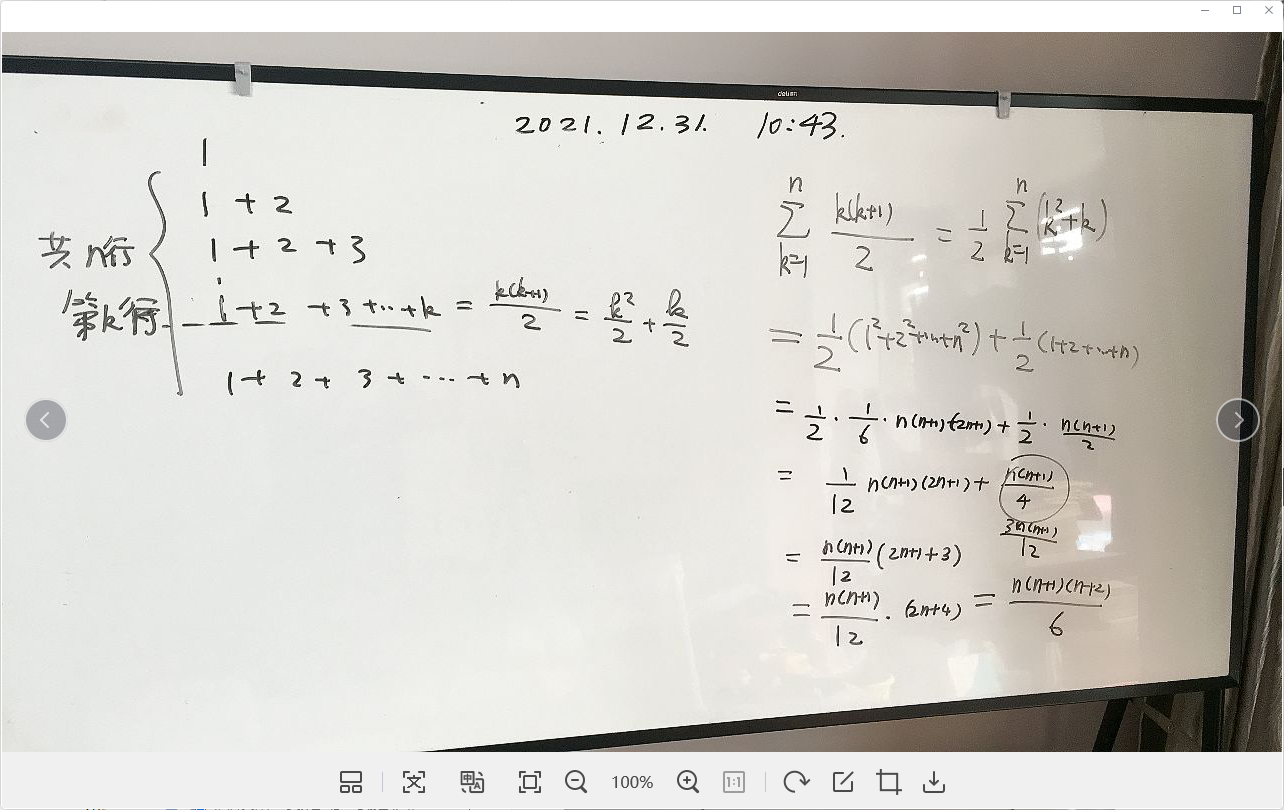 deli
2021.12.31. 10:43.
1
1 + 2
1 + 2 + 3
共n行
⋮
第k行 1 + 2 + 3 + ... + k = k(k+1)/2 = k²/2 + k/2
1 + 2 + 3 + ... + n
∑_{k=1}^{n} k(k+1)/2 = 1/2 ∑_{k=1}^{n} (k²+k)
= 1/2 (1²+2²+...+n²) + 1/2 (1+2+...+n)
= 1/2 · 1/6 · n(n+1)(2n+1) + 1/2 · n(n+1)/2
= 1/12 n(n+1)(2n+1) + n(n+1)/4
3n(n+1)/12
= n(n+1)/12 (2n+1+3)
= n(n+1)/12 · (2n+4) = n(n+1)(n+2)/6
100%
1:1